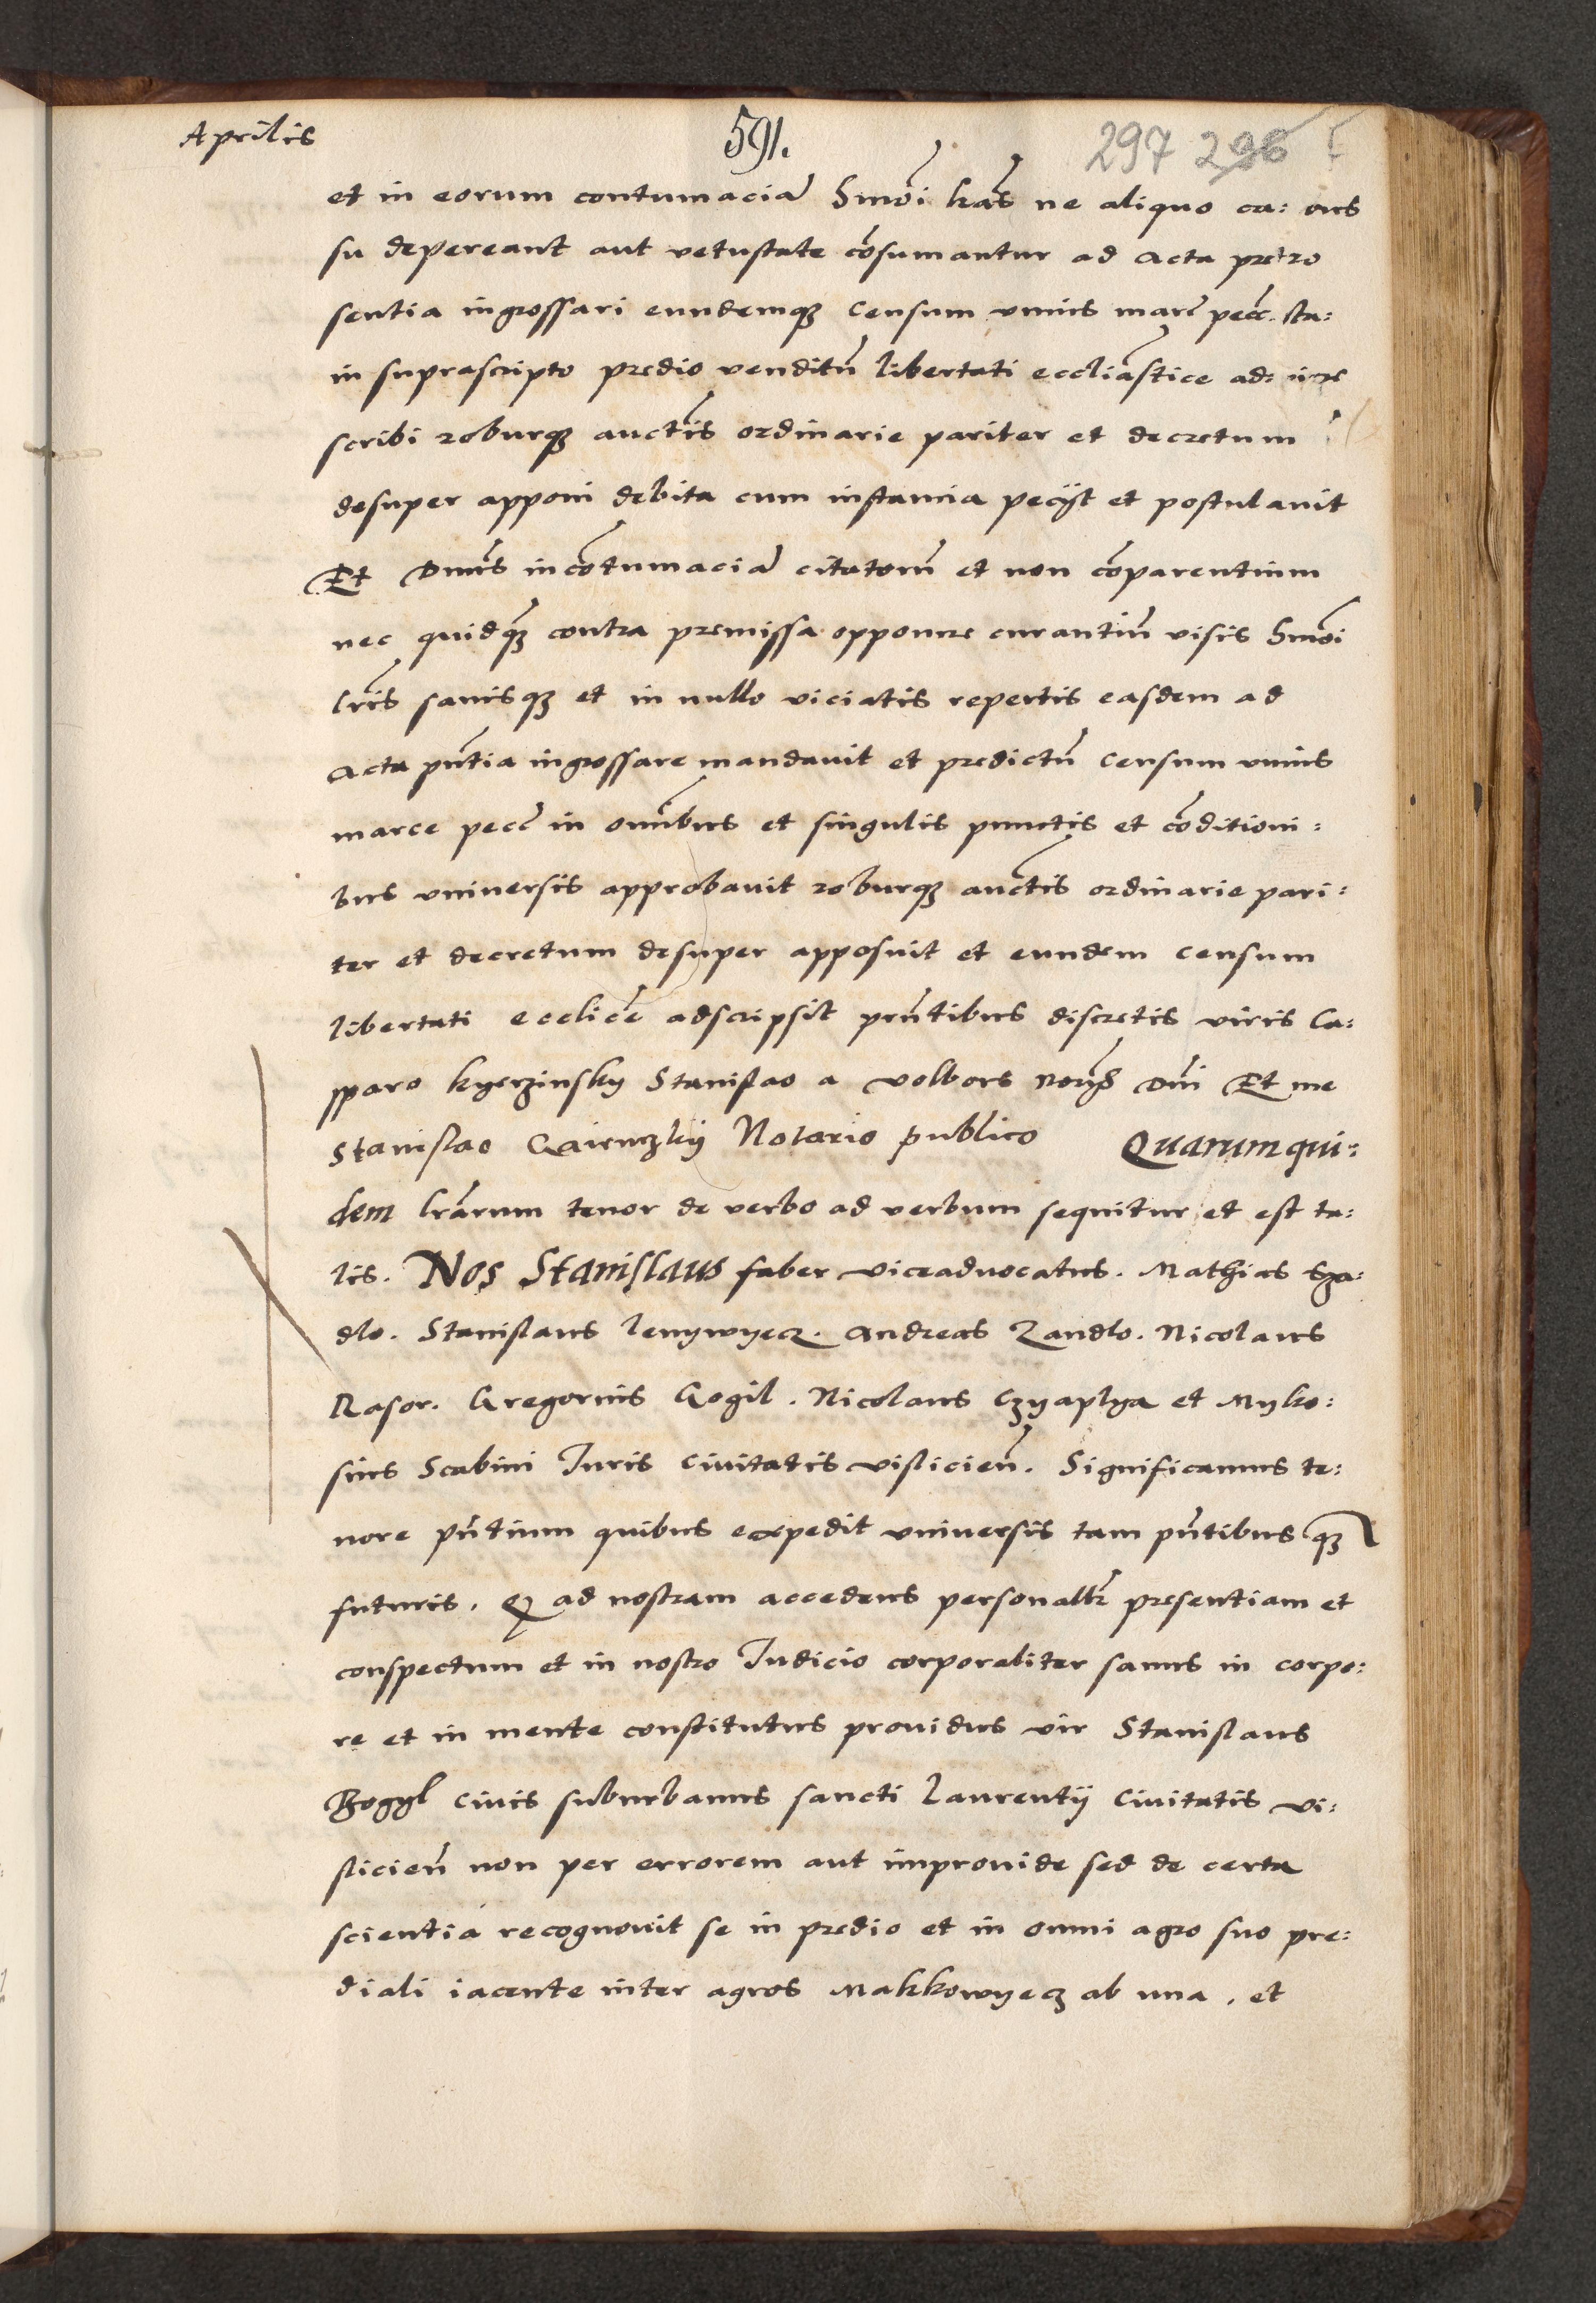 Aprilis
591.
297 296
et in eorum contumaciā Smōi lrās ne aliquo ca:
su depereant aut vetustate cōsumantur ad Acta pre
sentia ingrossari eundemqȝ Censum vnius marc̄ pec̄.
in suprascripto predio venditū libertati eccliāstice ad:
scribi roburqȝ auctīs ordinarie pariter et decretum
desuper apponi debita cum instancia pecijt et postulauit
Et Dnūs in cōtumaciā citatorū et non cōparentium
nec quidqȝ contra premissa opponere curantiū visis Smōi
lrīs sanisqȝ et in nullo viciatis repertis easdem ad
Acta pn̄tia ingrossare mandauit et predictū Censum vnius
marce pec̄ in omībus et singulis punctis et cōditioni:
bus vniuersis approbauit roburqȝ auctīs ordinarie pari:
ter et decretum desuper apposuit et eundem Censum
libertati ecclicē adscripsit pn̄tibus discretis viris Ca:
sparo kyerzinsky Stanislao a volbors Dnī Et me
Stanislao Notario publico Quarum qui:
dem lrārum tenor de verbo ad verbum sequitur et est ta:
lis. Nos Stanislaus faber viceaduocatus. Mathias Sza:
dlo. Stanislaus lenywyecz. Andreas Zandlo. Nicolaus
Rasor. Gregorius Gogil. Nicolaus Czyaplya et Myko:
sius Scabini Iuris Ciuitatis vislicien̄. Significamus te:
nore pn̄tium quibus expedit vniuersis tam pn̄tibus qȝ
futuris. Qɜ ad nostram accedens personalr̄ presentiam et
conspectum et in nostro Iudicio corporaliter sanus in corpo:
re et in mente constitutus prouidus vir Stanislaus
Bogyl ciuis suburbanus sancti laurentij Ciuitatis vi:
slicien̄ non per errorem aut improuide sed de certa
scientia recognouit se in predio et in omni agro suo pre:
diali iacente inter agros Makkowyecz ab vna. et